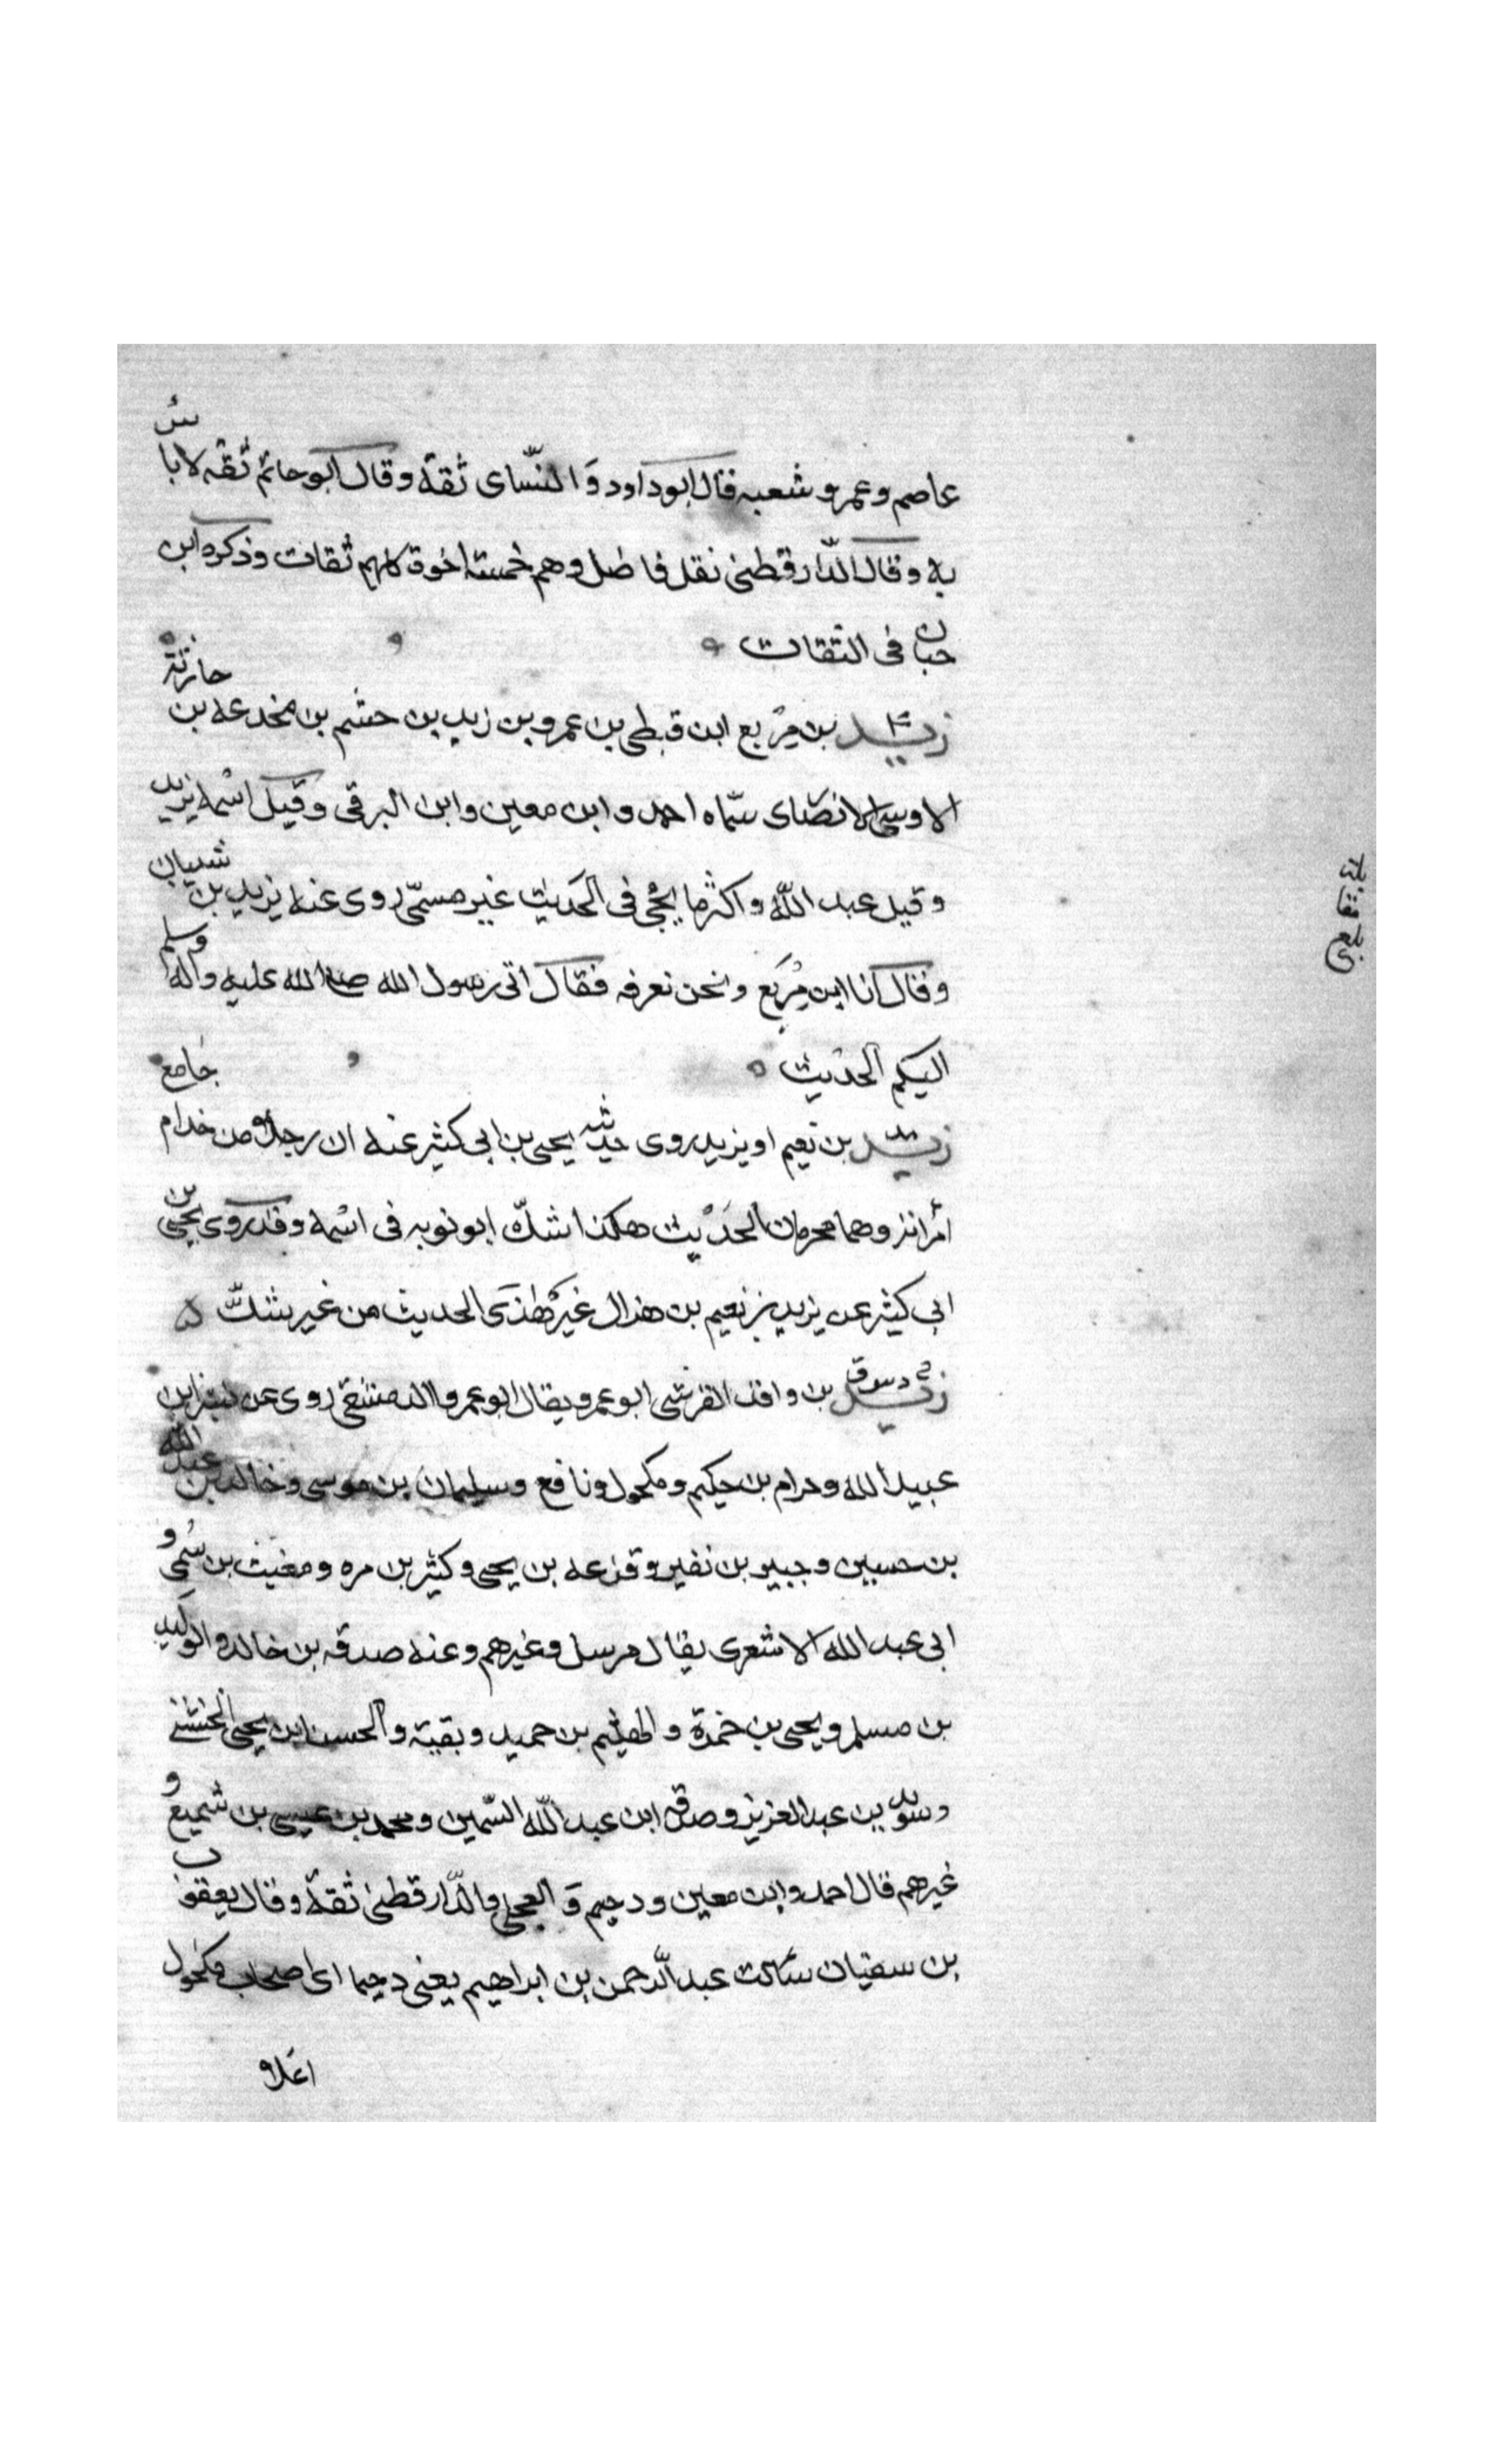 عاصم وعمر وشعبه قال ابو داود وَالنّسَاى ثقةٌ وقال ابو حاتم ثقه لا باسُ
به وقال الدّارقطنى نقل فاضل وهم خمسة اخوة كلهم ثقات وذكره ابن
حبان فى الثقات
زيد بن مِرْبع ابن قبطى بن عمرو بن زيد بن حشم بن مخدعه بن حارثة
الاوسى الانصاى سمّاه احمد وابن معين وابن البرقى وقيل اسْمه يزيد
وقيل عبد اللّه واكثر ما يجىْ فى الحَديث غير مسمّى روى عنه يزيد بن شيبان
وقال انا ابن مِرْبَع ونحن نعرفه فقال اتى رسول الله صلى الله عليه واله وسلم
اليكم الحديث
زيد بن نعيم او يزيد روى حديثه يحيى بن ابى كثير عنه ان رجلا من خدام جامع
امْراته وهما محرمان الحَديث هكذا شكّ ابو توبه فى اسْمه وقد روى يحيى بن
ابى كثير عن يزيد بن نعيم بن هذال غير هذى الحديث من غير شكّ
زيد بن واقد القرشى ابو عمر ويقال ابو عمرو الدمشقى روى عن بسر ابن
عبيد الله وحرام بن حكيم ومكحول ونافع وسليمان بن موسى وخالد بن عبد الله
بن حسين وجبير بن نفير وقزعه بن يحيى وكثير بن مره ومغيث بن سُمى و
ابى عبد الله الاشعرى يقال مرسل وغيرهم وعنه صدقه بن خالد والوليد
بن مسلم ويحيى بن حمزة والهيثم بن حميد وبقية والحسن ابن يحيى الخشنى
وسويد بن عبد العزيز وصدقه ابن عبد اللّه السّمين ومحمد بن عيسى بن شميع و
غيرهم قال احمد وابن معين ودحيم وَالعجلى والدّارقطنى ثقةٌ وقال يعقوب
بن سفيان سَالت عبد الرّحمن بن ابراهيم يعنى دحيما اى اصحاب مكحول
اعلا